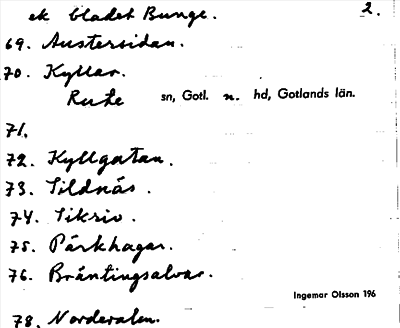 ek bladet Bunge. 2.
69. Austersidan.
70. Kyllar.
Rute sn, Gotl. n. hd, Gotlands län.
71.
72. Kyllgatan.
73. Sildnäs.
74. Sikriv.
75. Pärkhagar.
76. Bräntingsalvar.
Ingemar Olsson 196
78. Norderalen.